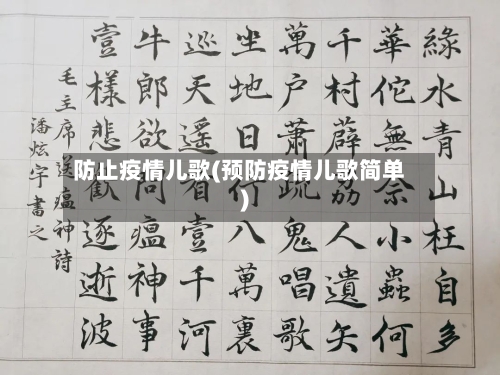 防止疫情儿歌(预防疫情儿歌简单
)
綠水青山枉自多
華佗無奈小蟲何
千村薜荔人遺矢
萬户蕭疏鬼唱歌
坐地日行八萬裏
巡天遥看壹千河
牛郎欲問瘟神事
壹樣悲歡逐逝波
毛主席送瘟神詩
潘炫宇書之